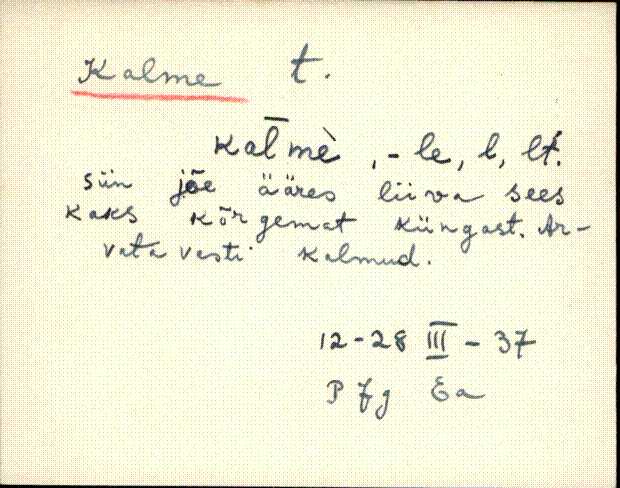 Kalme t.
kal̄mè, -le, l, lt.
siin jõe ääres liiva sees
kaks kõrgemat küngast. Ar-
vatavasti kalmud.
12-28 III - 37
P Jg Ea